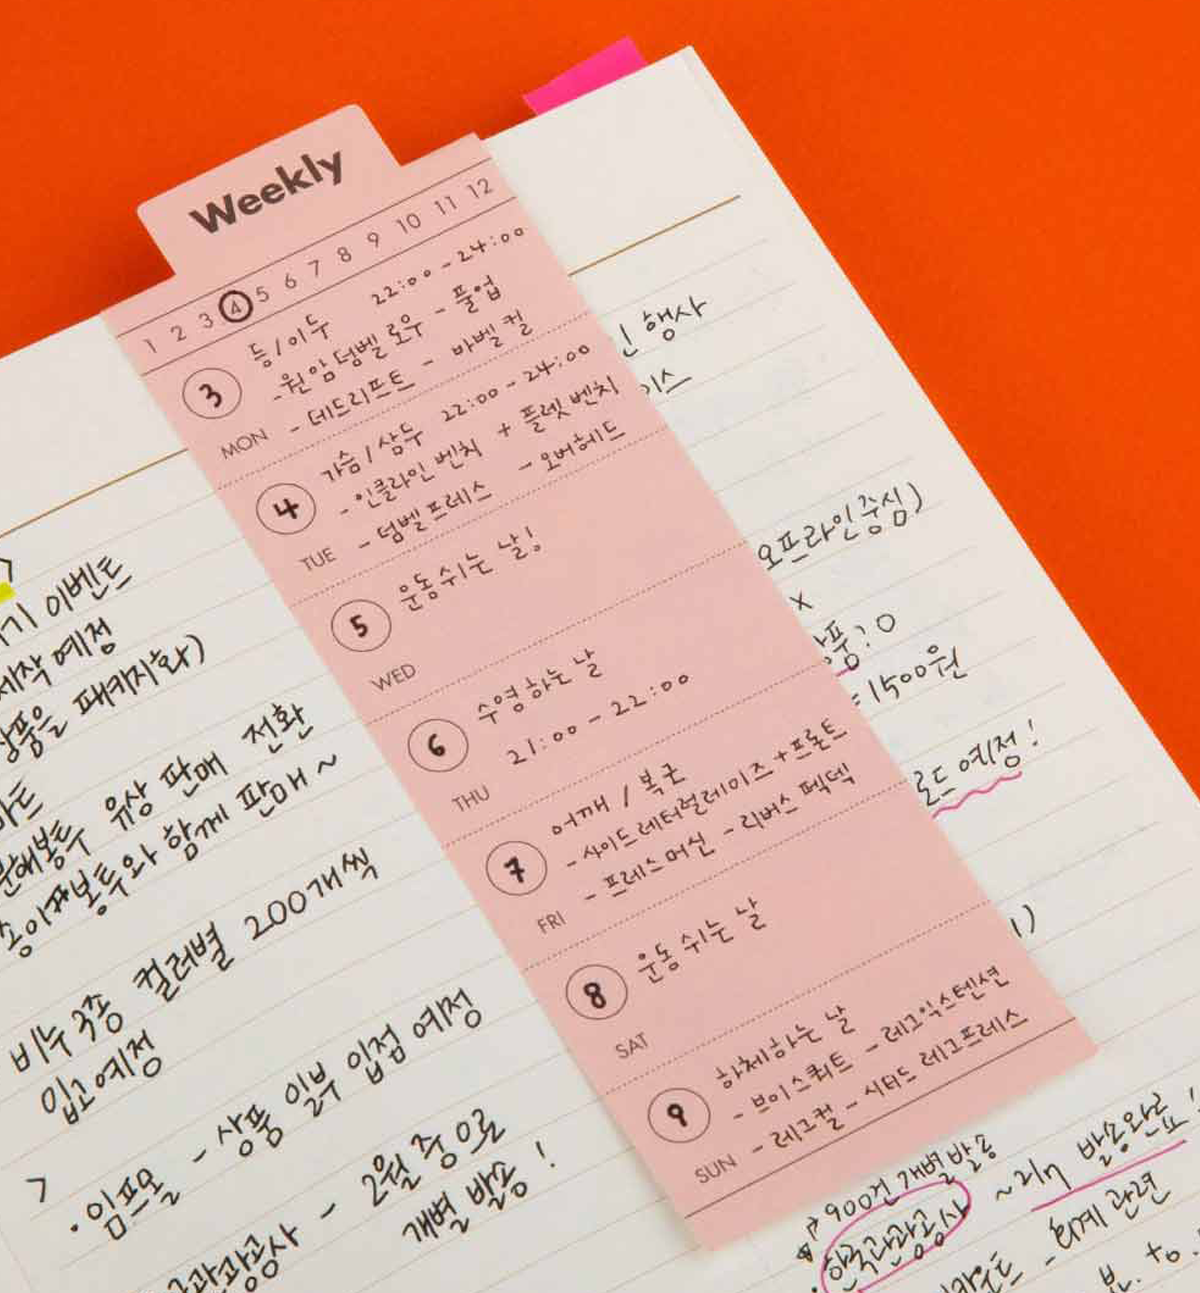 Weekly
1 2 3 4 5 6 7 8 9 10 11 12
3 MON
등/이두 22:00-24:00
-원암덤벨로우 - 풀업
- 데드리프트 - 바벨 컬
4 TUE
가슴/삼두 22:00-24:00
-인클라인 벤치 + 플렛 벤치
- 덤벨프레스 - 오버헤드
5 WED
운동 쉬는 날!
6 THU
수영하는 날
21:00 - 22:00
7 FRI
어깨 / 복근
- 사이드레터럴레이즈+프론트
- 프레스머신 - 리버스 펙덱
8 SAT
운동 쉬는 날
9 SUN
하체하는 날
- 브이스쿼트 - 레그익스텐션
- 레그컬 - 시티드 레그프레스
이벤트
제작 예정
상품을 패키지화)
유상 판매 전환
함께 판매~
비누 3종 컬러별 200개씩
입고예정
>
· 임프온 - 상품 일부 입점 예정
관광공사 - 2월 중으로
개별 발송!
행사
오프라인 중심)
x
상품: 0
=1500원
로드 예정!
1)
900건 개별발송
· 한국관광공사 ~2/7 발송완료!
- 회계 관련